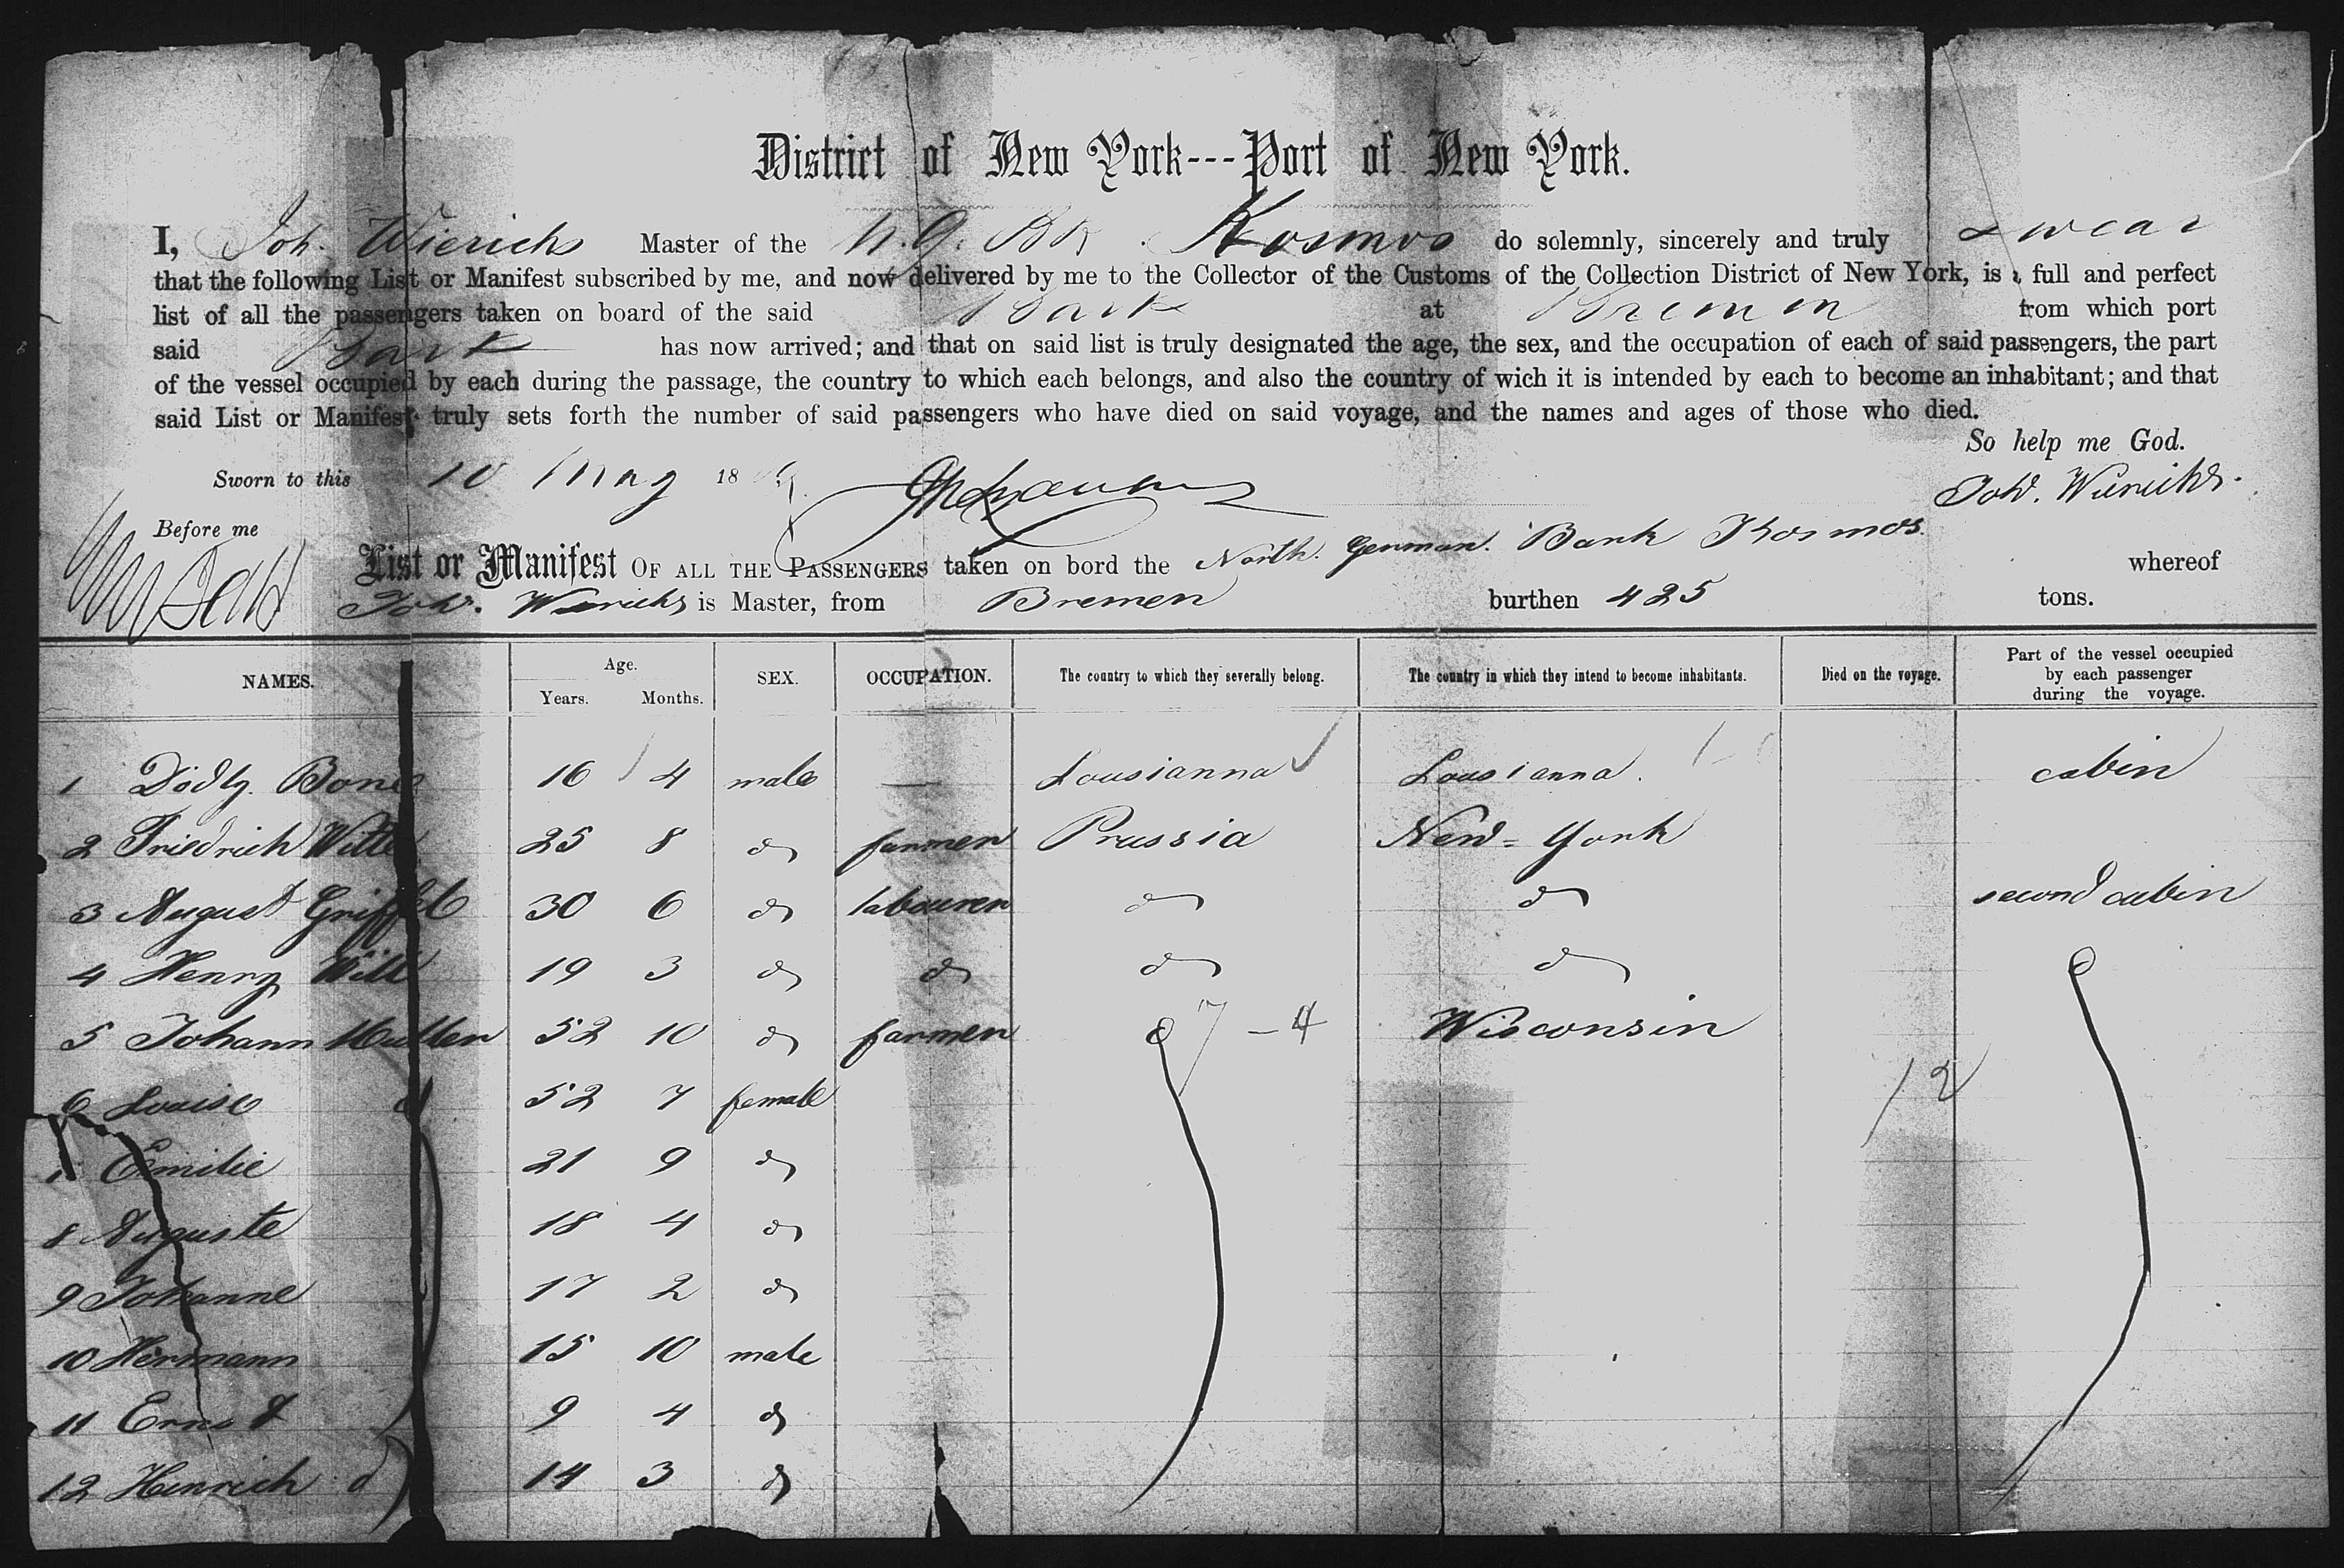 District of New York---Port of New York.
I, Joh. Wierichs Master of the N.G. Bk. Kosmos do solemnly, sincerely and truly swear
that the following List or Manifest subscribed by me, and now delivered by me to the Collector of the Customs of the Collection District of New York, is a full and perfect
list of all the passengers taken on board of the said Bark at Bremen from which port
said Bark has now arrived; and that on said list is truly designated the age, the sex, and the occupation of each of said passengers, the part
of the vessel occupied by each during the passage, the country to which each belongs, and also the country of wich it is intended by each to become an inhabitant; and that
said List or Manifest truly sets forth the number of said passengers who have died on said voyage, and the names and ages of those who died.
So help me God.
Sworn to this 10 May 18 Joh. Wierichs.
Before me
List or Manifest OF ALL THE PASSENGERS taken on bord the North. German. Bark Kosmos. whereof
Joh. Wierichs is Master, from Bremen burthen 425 tons.
NAMES. Age. Years. Months. SEX. OCCUPATION. The country to which they severally belong. The country in which they intend to become inhabitants. Died on the voyage. Part of the vessel occupied by each passenger during the voyage.
1 Dödly. Bone 16 4 male — Lousianna Lousianna. cabin
2 Friedrich Witte 25 8 do farmer Prussia New=York
3 August Griffel 30 6 do labourer do do second cabin
4 Henry Will 19 3 do do do do
5 Johann Muller 52 10 do farmer 17 - 4 Wisconsin
6 Louise d 52 7 female 12
Emilie 21 9 do
8 Auguste 18 4 do
9 Johanne 17 2 do
10 Hermann 15 10 male
11 Ernst 9 4 do
12 Heinrich d 14 3 do